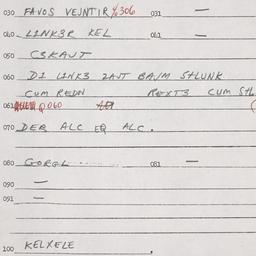 030 FAVOS VEJNTIR % 306 031 —
040 LINK3R KEL 061 —
050 C3KAUT
060 DI LINK3 2AUT BAJM StLUNK
CUM REDN REXT3 CUM StL
061 Q 060
070 DER ALC EQ ALC.
080 GORGL 081 —
090 —
091 —
100 KELXELE